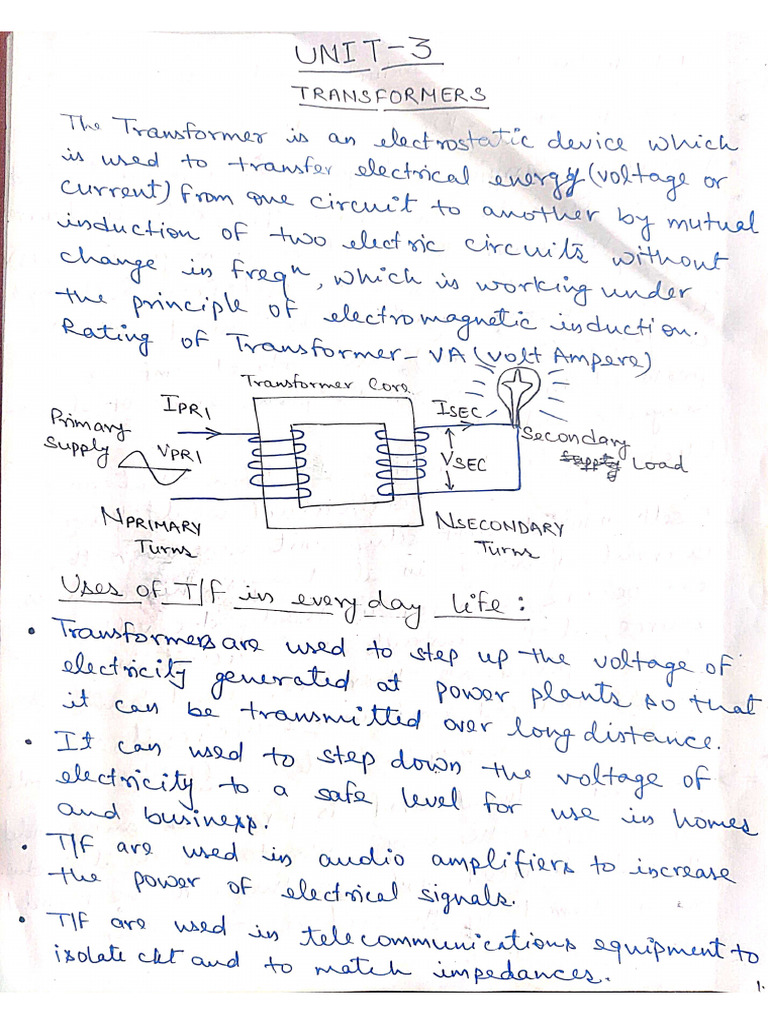 UNIT-3
TRANSFORMERS
The Transformer is an electrostatic device which
is used to transfer electrical energy (voltage or
current) from one circuit to another by mutual
induction of two electric circuits without
change in freqn, which is working under
the principle of electromagnetic induction.
Rating of Transformer - VA (volt Ampere)
Transformer Core
IPRI
ISEC
Primary
Supply
VPRI
VSEC
Secondary
Supply Load
NPRIMARY
Turns
NSECONDARY
Turns
Uses of T/f in every day life:
• Transformers are used to step up the voltage of
electricity generated at power plants so that
it can be transmitted over long distance.
• It can used to step down the voltage of
electricity to a safe level for use in homes
and business.
• T/F are used in audio amplifiers to increase
the power of electrical signals.
• T/F are used in telecommunications equipment to
isolate ckt and to match impedances.
1.